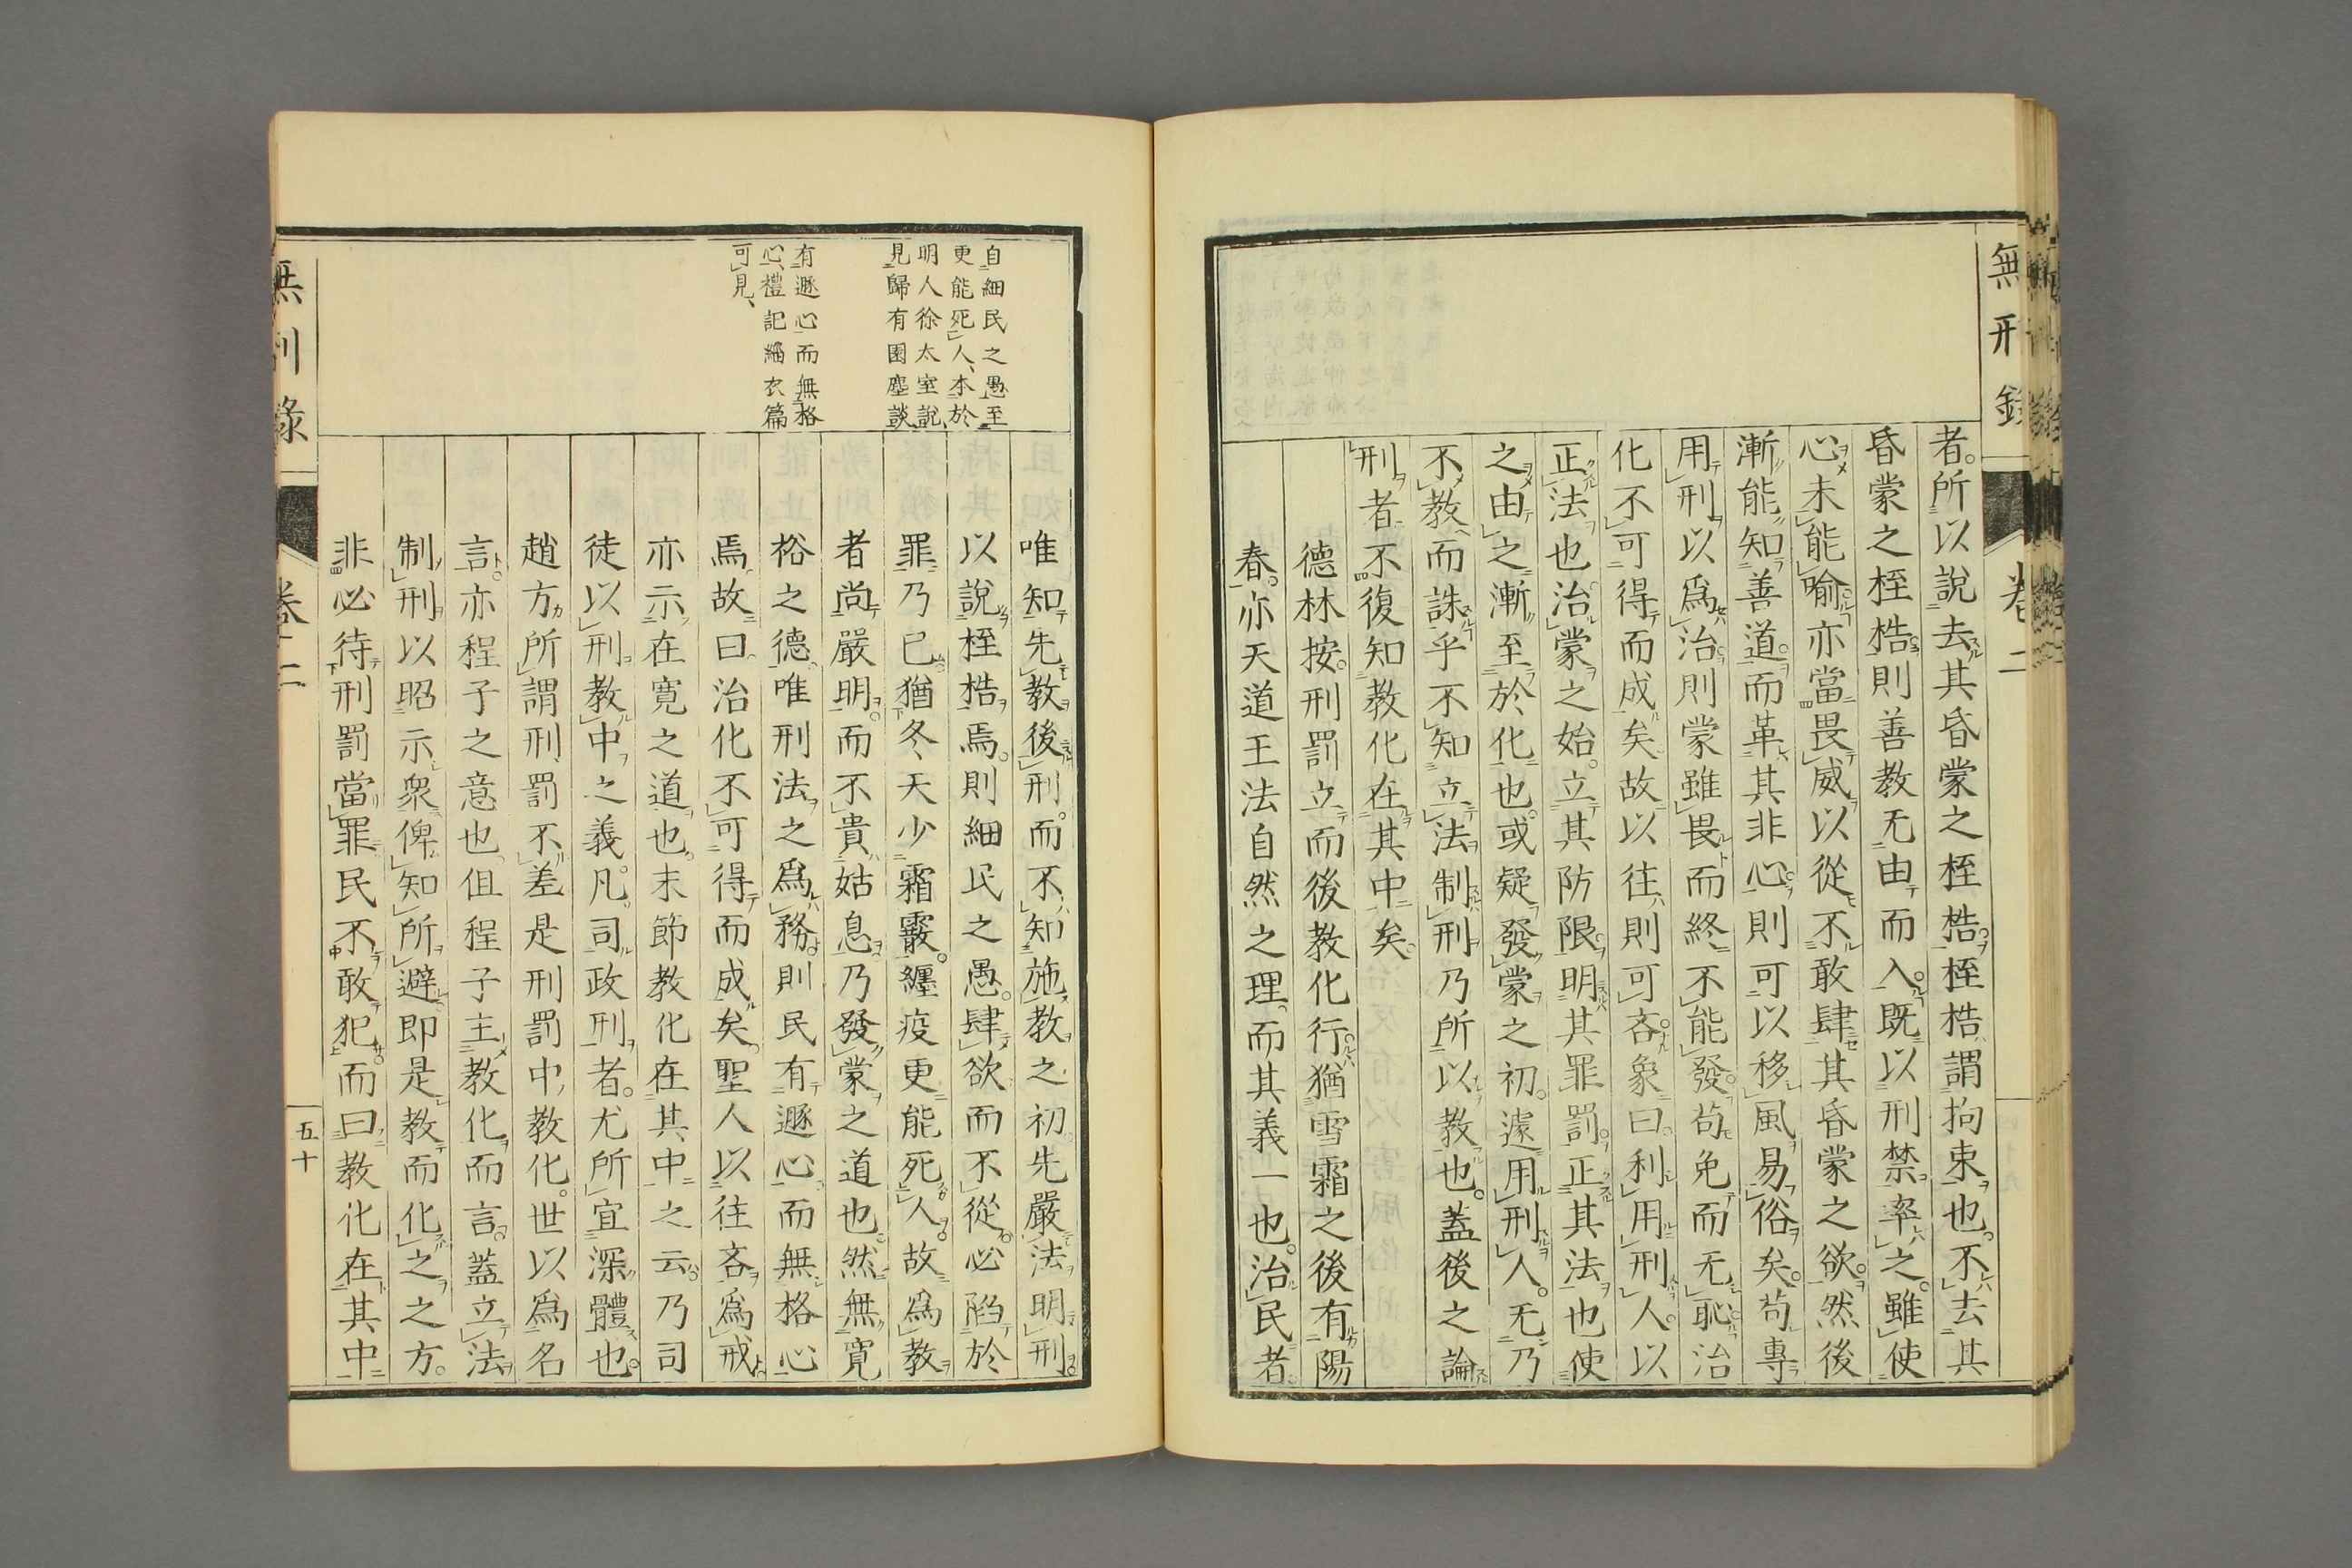 無刑錄
卷二
者。所以說去其昏蒙之桎梏。桎梏謂拘束也。不去其
昏蒙之桎梏則善教无由而入。既以刑禁率之。雖使
心未能喻亦當畏威以從不敢肆其昏蒙之欲。然後
漸能知善道而革其非心則可以移風易俗矣。苟專
用刑以爲治則蒙雖畏而終不能發苟免而无恥治
化不可得而成矣故以往則可吝象曰利用刑人。以
正法也治蒙之始。立其防限明其罪罰正其法也使
之由之漸至於化也。或疑發蒙之初。遽用刑人。无乃
不教而誅乎不知立法制刑乃所以教也。蓋後之論
刑者不復知教化在其中矣。
德林按。刑罰立而後教化行猶雪霜之後有陽
春。亦天道王法自然之理而其義一也。治民者。
自細民之愚至
更能死人、本於
明人徐太室說、
見歸有園麈談
有遯心而無格
心、禮記緇衣篇
可見、
唯知先教後刑。而不知施教之初先嚴法明刑
以說桎梏焉。則細民之愚。肆欲而不從必陷於
罪乃已猶冬天少霜霰。纏疫更能死人。故爲教
者尚嚴明。而不貴姑息乃發蒙之道也。然無寬
裕之德唯刑法之爲務則民有遯心而無格心
焉故曰治化不可得而成矣。聖人以往吝爲戒
亦示在寬之道也。末節教化在其中之云。乃司
徒以刑教中之義。凡司政刑者。尤所宜深體也。
趙方所謂刑罰不差是刑罰中教化。世以爲名
言。亦程子之意也。但程子主教化而言。蓋立法
制刑以昭示衆俾知所避即是教而化之之方。
非必待刑罰當罪民不敢犯。而曰教化在其中
無刑錄
卷二
五十